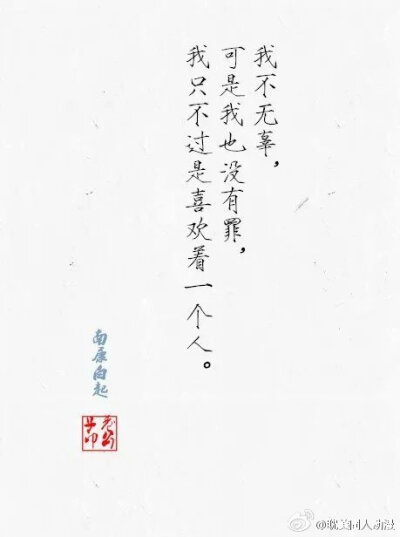 我不无辜，
可是我也没有罪，
我只不过是喜欢着一个人。
南康白起
@耽美同人动漫